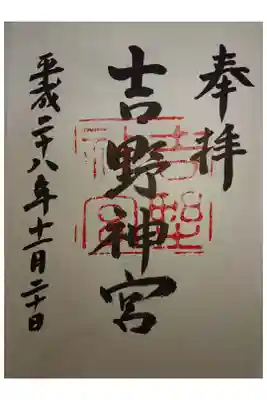 奉拝
吉野神宮
平成二十八年十一月二十日
吉野神宮